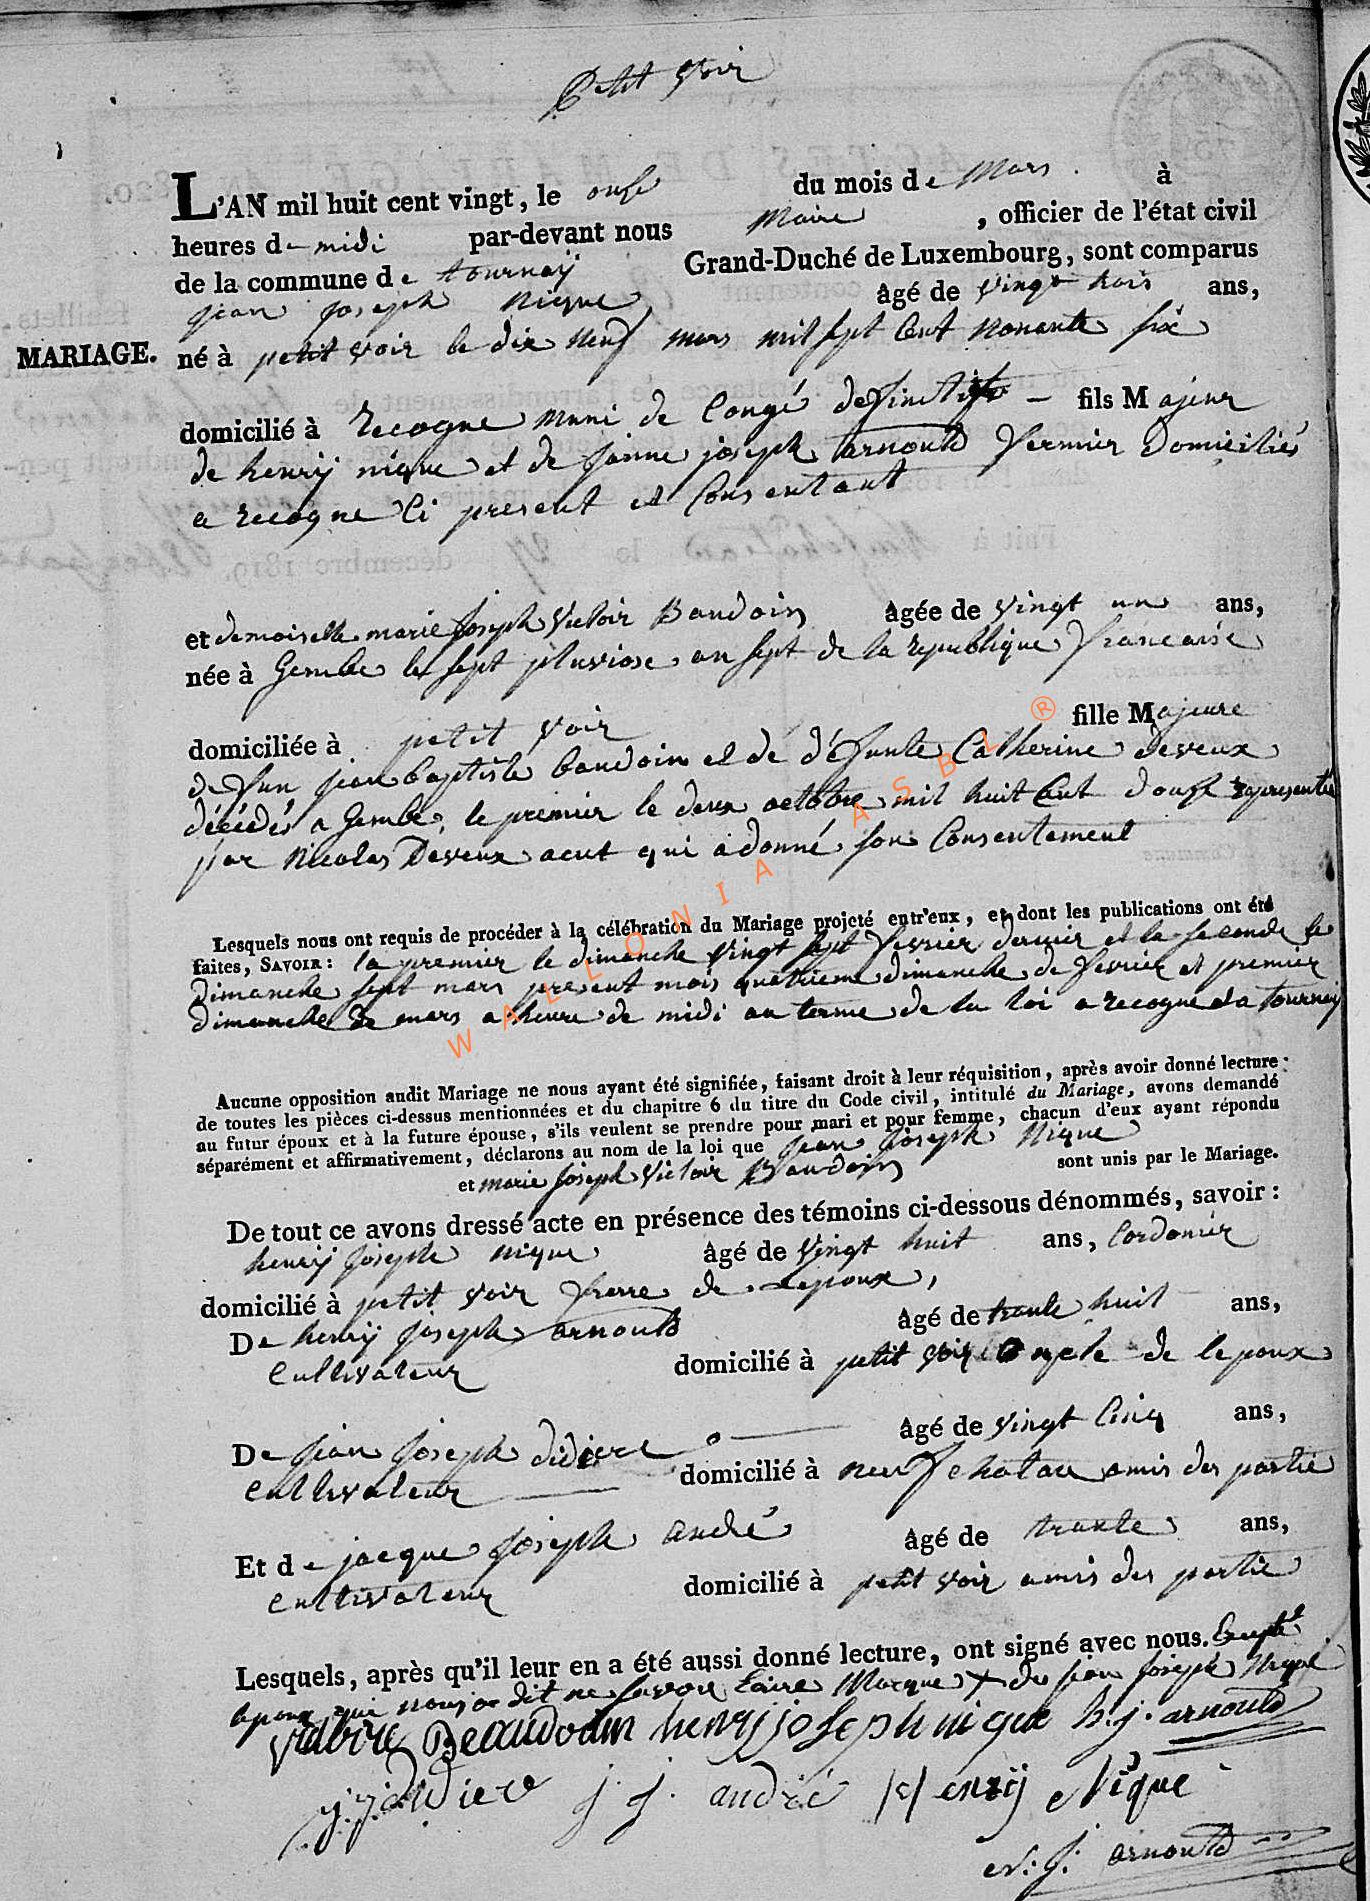 Petit Voir
L'AN mil huit cent vingt, le onse du mois de Mars à
heures de midi par-devant nous Maire , officier de l'état civil
de la commune de tournay Grand-Duché de Luxembourg, sont comparus
jean joseph nique âgé de vingt trois ans,
MARIAGE. né à petit voir le dix neuf mars mil sept Cent nonante six
domicilié à Recogne muni de Congé definitif fils Majeur
de henrij nique et de jeanne joseph arnould fermier Domiciliés
a recogne Ci present et Consentant
et demoiselle marie joseph Victoir Baudoin âgée de vingt un ans,
née à Gembe le sept pluviose an sept de la republique francaise
domiciliée à petit voir fille Majeure
de fun jean baptiste baudoin et de défunte Catherine deveux
décédés a Gembe, le premier le deux octobre mil huit Cent douse représentée
par Nicolas Deveux qui a donné son Consentement
Lesquels nous ont requis de procéder à la célébration du Mariage projeté entr'eux, et dont les publications ont été
faites, SAVOIR: la premier le dimanche vingt sept fevrier dernier et la seconde le
dimanche sept mars present mois quatrieme dimanche de fevrier et premier
dimanche de mars a heure de midi au terme de la loi a recogne et a tournay
Aucune opposition audit Mariage ne nous ayant été signifiée, faisant droit à leur réquisition, après avoir donné lecture
de toutes les pièces ci-dessus mentionnées et du chapitre 6 du titre du Code civil, intitulé du Mariage, avons demandé
au futur époux et à la future épouse, s'ils veulent se prendre pour mari et pour femme, chacun d'eux ayant répondu
séparément et affirmativement, déclarons au nom de la loi que jean joseph Nique
et marie joseph Victoir Baudoin sont unis par le Mariage.
De tout ce avons dressé acte en présence des témoins ci-dessous dénommés, savoir:
henrij joseph nique âgé de vingt huit ans, Cordonier
domicilié à petit voir frere de lepoux,
De henrij joseph arnould âgé de trante huit ans,
Cultivateur domicilié à petit voir oncle de lepoux
De jean joseph didiere âgé de vingt Cinq ans,
Cultivateur domicilié à neufchatau amis des partie
Et de jacque joseph andré âgé de trante ans,
Cultivateur domicilié à petit voir amis des partie
Lesquels, après qu'il leur en a été aussi donné lecture, ont signé avec nous. Exepté
lepoux qui nous a dit ne savoir Marque X de jean joseph Nique
Victoire Beaudouin henrij joseph nique h. j. arnould
j. j. didier j j. andré Henrij Nique
N: j. arnould
WALLONIA ASBL ®